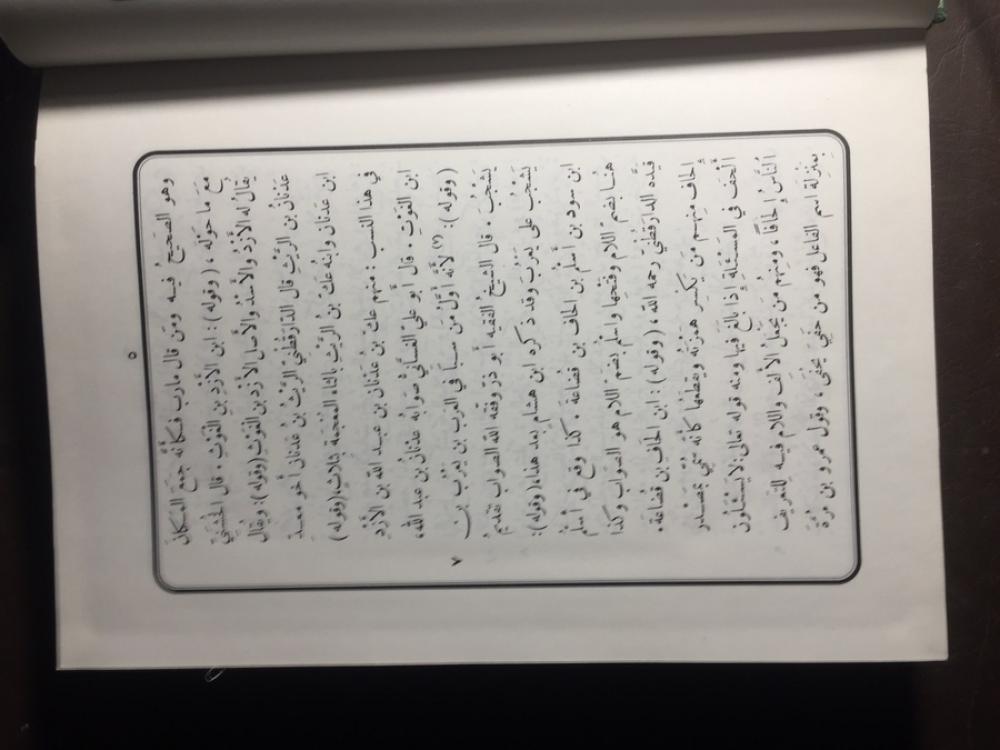 ٥
وهو الصَّحيحُ فيه ومَن قال مارب فكأنَّه جَمَعَ المكانَ
مَعَ ما حَوْلَه ، ( وقوله ) : ابن الأَزْدِ بنِ الغَوْثِ . قال الخُشَنِيُّ
يقالُ لهُ الأَزْدُ والأَسْدُ والأصل الأَزْد بن الغوثِ (وقوله): ويقال
عَدْنانُ بن الرَّيْثِ قال الدَّارَقُطْنِيُّ الرَّيْثُ بنُ عَدْنان أخو معدّ
ابن عَدْنان وابْنُه عَكّ بنُ الرَّيْث بالثاء المُعْجَمةِ بثلاث،(وقوله)
في هذا النسب : منهم عكّ بنُ عُدْنان بنِ عبد الله بنِ الأَزْدِ
ابن الغَوْثِ . قال أبو عليّ الغَسَّانِيُّ صوابُه عدْنانُ بن عبد الله،
( وقوله ) : (٢) لأَنه أوَّلُ مَن سَبأَ في العَرب بن يَعْرُب بن
يَشْجُبَ . قال الشيخُ الفقيه أبو ذرّ وفَّقه الله الصواب تقديمُ
يَشْجُب على يَعْرُبَ وقد ذكره ابن هشام بعد هذا،(وقوله):
ابن سود بن أَسلُم بن الحاف بن قُضاعَة . كذا وقع في أسلُم
هُنا بضمّ اللام وفتحها واسلُم بضمّ اللام هو الصواب وكذا
قيَّده الدارَقُطْنِيّ رحمه الله ، ( وقوله ) : ابن الحَاف بن قُضاعَة.
الحاف منهم مَن يَكْسِر هَمْزَتَه ويقطَعُها كأنَّه سُمِّي بمَصْدر
أَلْحَفَ في المسْئلةِ إذا بالَغ فيها ومنه قوله تعالى: لا يَسْئَلُونَ
النَّاسَ إِلْحافًا، ومنهم من يَجْعَلُ الألفَ واللام فيه للتعريف
بمنزلة اسم الفاعل فهو من حَفِيَ يَحْفَى، وقول عمرو بن مرّة
٧